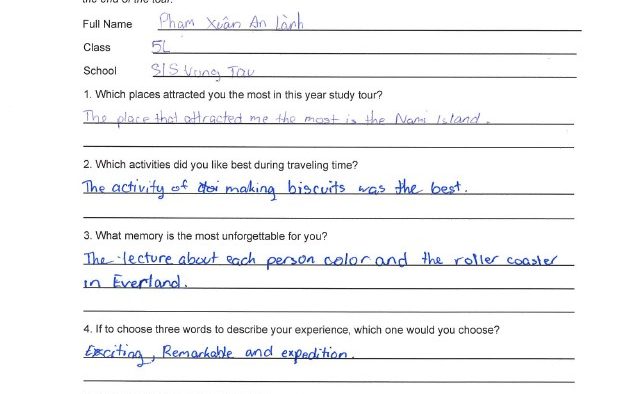 the end of the tour.
Full Name Phạm Xuân An Lành
Class 5L
School SIS Vung Tau
1. Which places attracted you the most in this year study tour?
The place that attracted me the most is the Nami Island.
2. Which activities did you like best during traveling time?
The activity of making biscuits was the best.
3. What memory is the most unforgettable for you?
The lecture about each person color and the roller coaster
in Everland.
4. If to choose three words to describe your experience, which one would you choose?
Exciting, Remarkable and expedition.